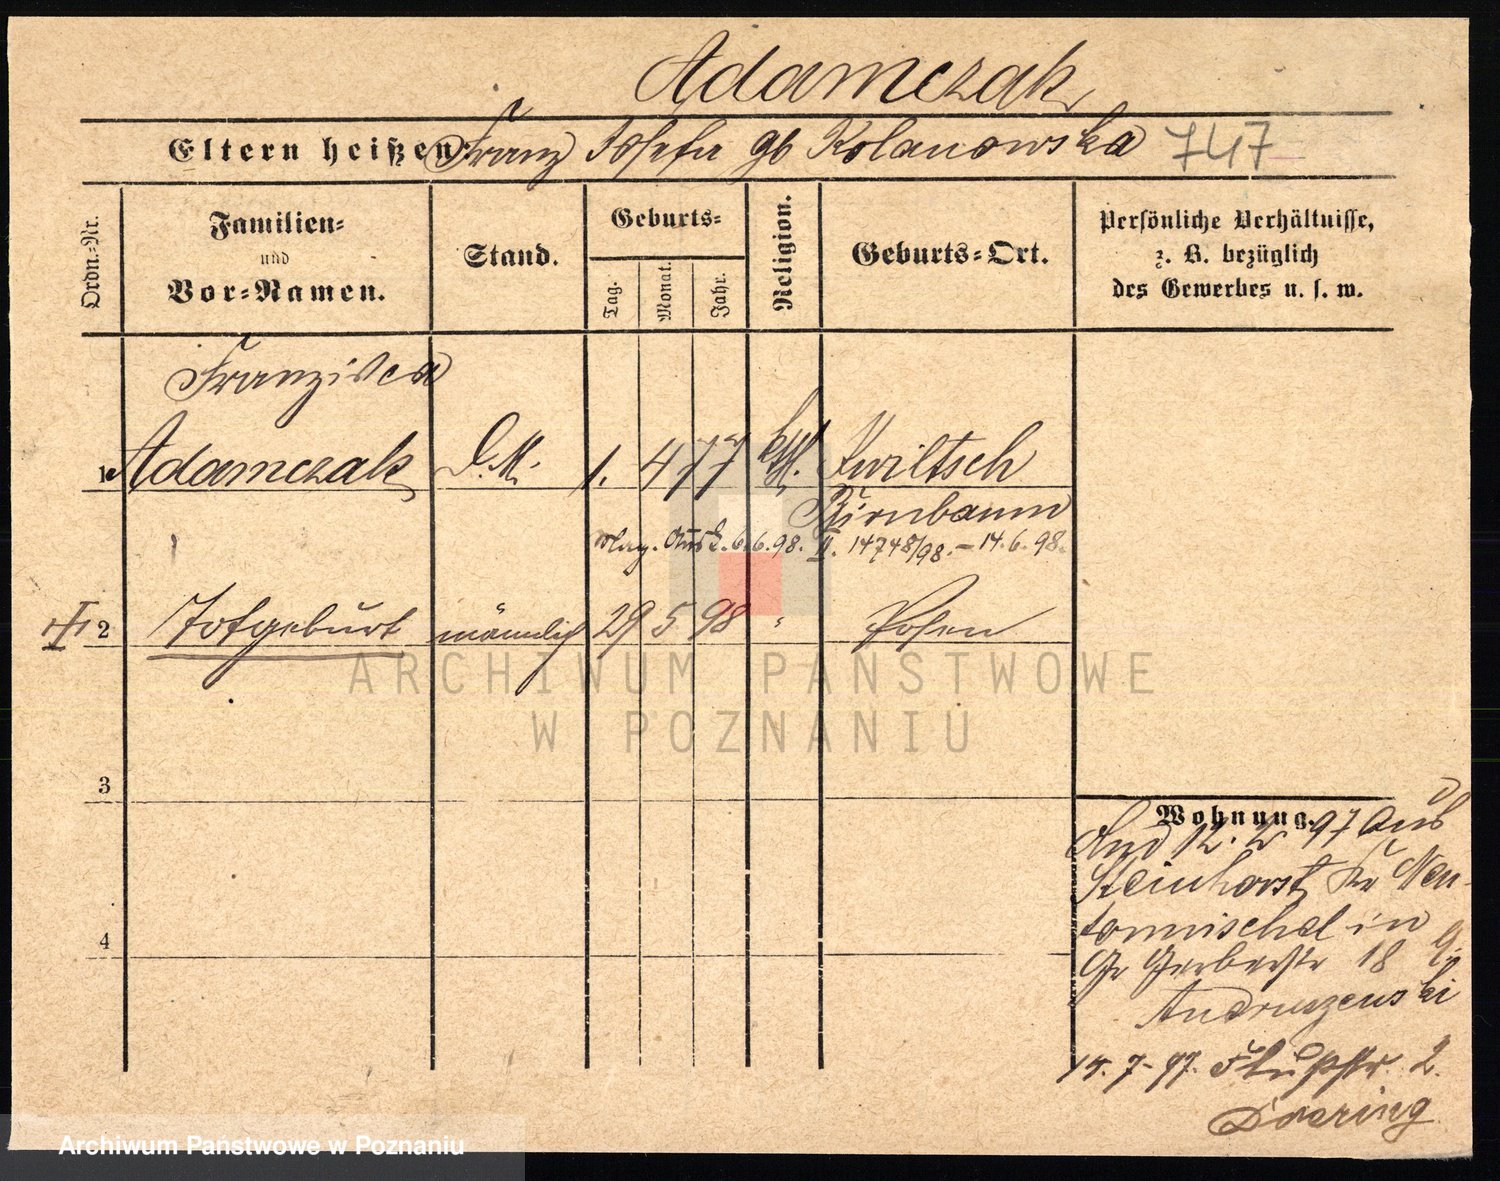 Adamczak
Eltern heißen: Franz Josefa gb Kolanowska 747
Ordn.-Nr.
Familien-
und
Vor-Namen.
Stand.
Geburts-
Tag.
Monat.
Jahr.
Religion.
Geburts-Ort.
Persönliche Verhältnisse,
z. B. bezüglich
des Gewerbes u. s. w.
Franzisca
1 Adamczak D.M. 1. 4 77 kth. Kwiltsch
Birnbaum
6.6.98. II. 14748/98. – 14.6.98.
2 Totgeburt männlich 29 5 98 " Posen
3
4
Wohnung.
12. 2 97 aus
Steinhorst Kr Neu-
tomischel in
Gr Gerberstr 18
Andruszewski
14. 7 - 97. Flußstr. 2.
Doering
ARCHIWUM PAŃSTWOWE
W POZNANIU
Archiwum Państwowe w Poznaniu